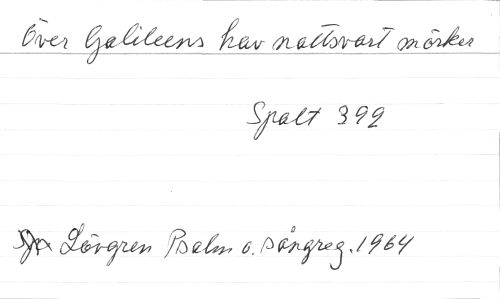 Över Galileens hav nattsvart mörker
Spalt 399
Lövgren Psalm o. sångreg. 1964